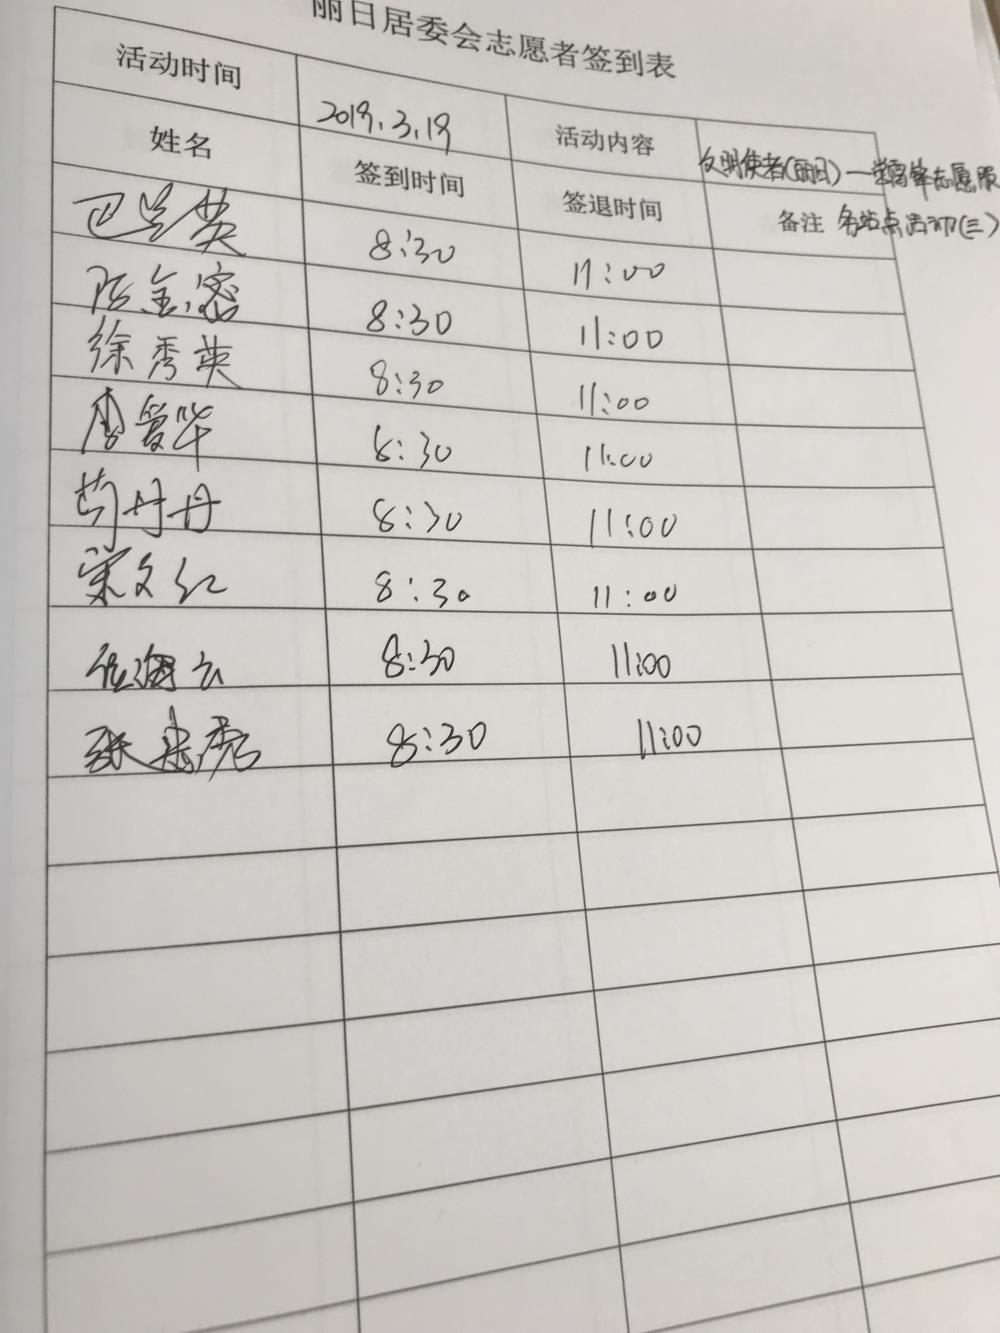 丽日居委会志愿者签到表
活动时间 2019.3.19 活动内容 文明使者(丽日)一学雷锋志愿服
姓名 签到时间 签退时间 备注 务站点活动(三)
8:30 11:00
8:30 11:00
徐秀英 8:30 11:00
唐爱华 8:30 11:00
荀丹丹 8:30 11:00
宋文红 8:30 11:00
8:30 11:00
张惠秀 8:30 11:00